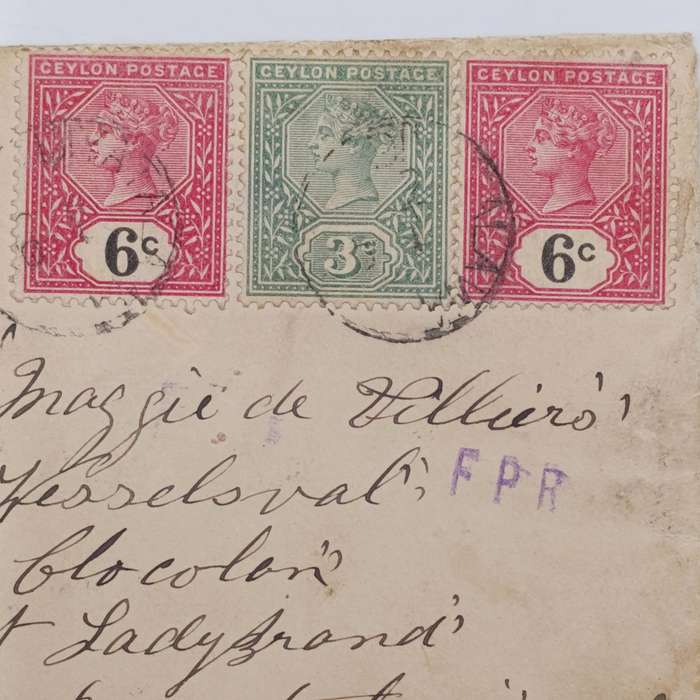 CEYLON POSTAGE CEYLON POSTAGE CEYLON POSTAGE
6c 3c 6c
Maggie de Villiers
Wesselsval
FPR
Clocolan
Ladybrand